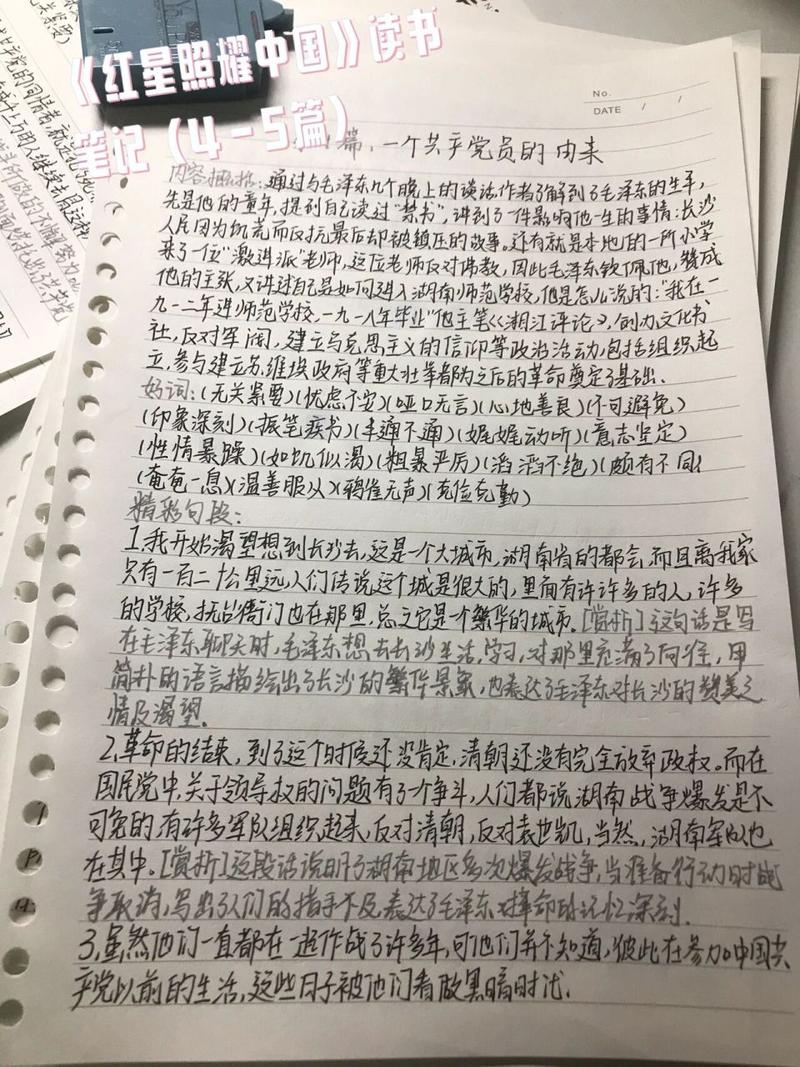 《红星照耀中国》读书
笔记（4-5篇）
No.
DATE / /
篇，一个共产党员的由来
内容概括：通过与毛泽东几个晚上的谈话作者了解到了毛泽东的生平，
先是他的童年，提到自己读过"禁书"，讲到了一件影响他一生的事情：长沙
人民因为饥荒而反抗最后却被镇压的故事。还有就是本地的一所小学
来了一位"激进派"老师，这位老师反对佛教，因此毛泽东钦佩他，赞成
他的主张，又讲过自己是如何进入湖南师范学校，他是怎么说的："我在一
九一二年进师范学校，一九一八年毕业"他主笔《湘江评论》，创办文化书
社，反对军阀，建立马克思主义的信仰等政治活动，包括组织起
立，参与建立苏维埃政府等重大壮举都为之后的革命奠定了基础.
好词：(无关紧要)(忧虑不安)(哑口无言)(心地善良)(不可避免)
(印象深刻)(振笔疾书)(半通不通)(娓娓动听)(意志坚定)
(性情暴躁)(如饥似渴)(粗暴严厉)(滔滔不绝)(颇有不同)
(奄奄一息)(温善服从)(鸦雀无声)(克俭克勤)
精彩句段：
1.我开始渴望想到长沙去，这是一个大城市，湖南省的都会，而且离我家
只有一百二十公里远，人们传说这个城是很大的，里面有许许多多的人，许多
的学校，抚台衙门也在那里，总之它是个繁华的城市。[赏析]这句话是写
在毛泽东聊天时，毛泽东想去长沙生活，学习，对那里充满了向往，用
简朴的语言描绘出了长沙的繁华景象，也表达了毛泽东对长沙的赞美之
情及渴望.
2.革命的结束，到了这个时候还没肯定，清朝还没有完全放弃政权。而在
国民党中，关于领导权的问题有了个争斗，人们都说湖南战争爆发是不
可免的，有许多军队组织起来，反对清朝，反对袁世凯，当然，湖南军队也
在其中。[赏析]这段话说明了湖南地区多次爆发战争，当准备行动时战
争取消，写出了人们的措手不及，表达了毛泽东对革命的记忆深刻.
3.虽然他们一直都在一起作战了许多年，可他们并不知道，彼此在参加中国共
产党以前的生活，这些日子被他们看做黑暗时代.